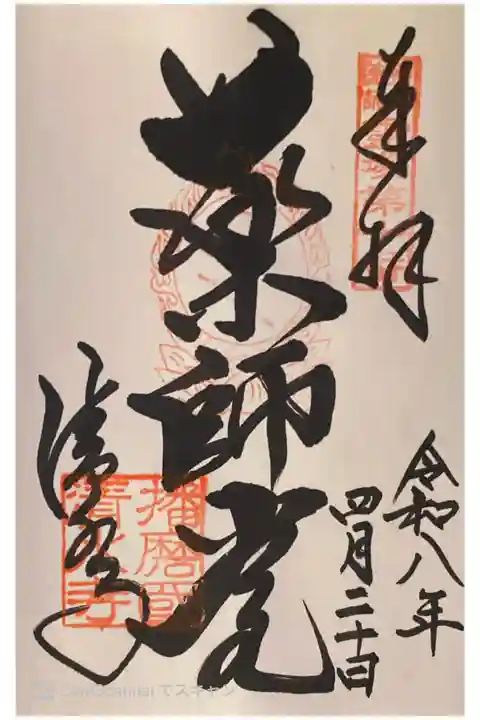 奉拝
令和八年
四月二十日
薬師堂
清水寺
播磨国
清水寺
CamScanner でスキャン